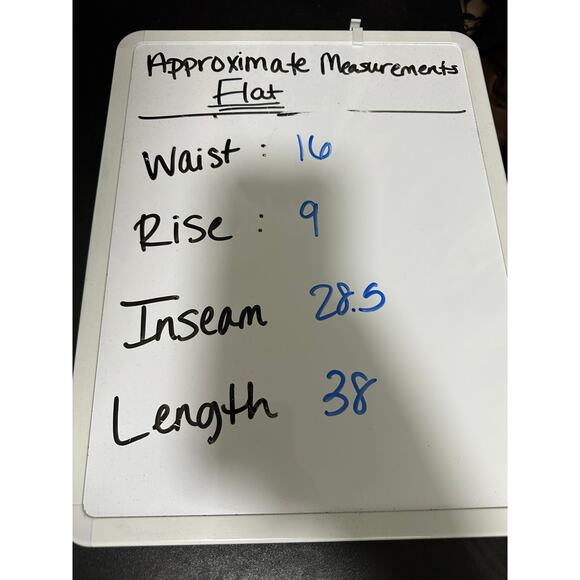 Approximate Measurements
Flat
Waist : 16
Rise : 9
Inseam 28.5
Length 38